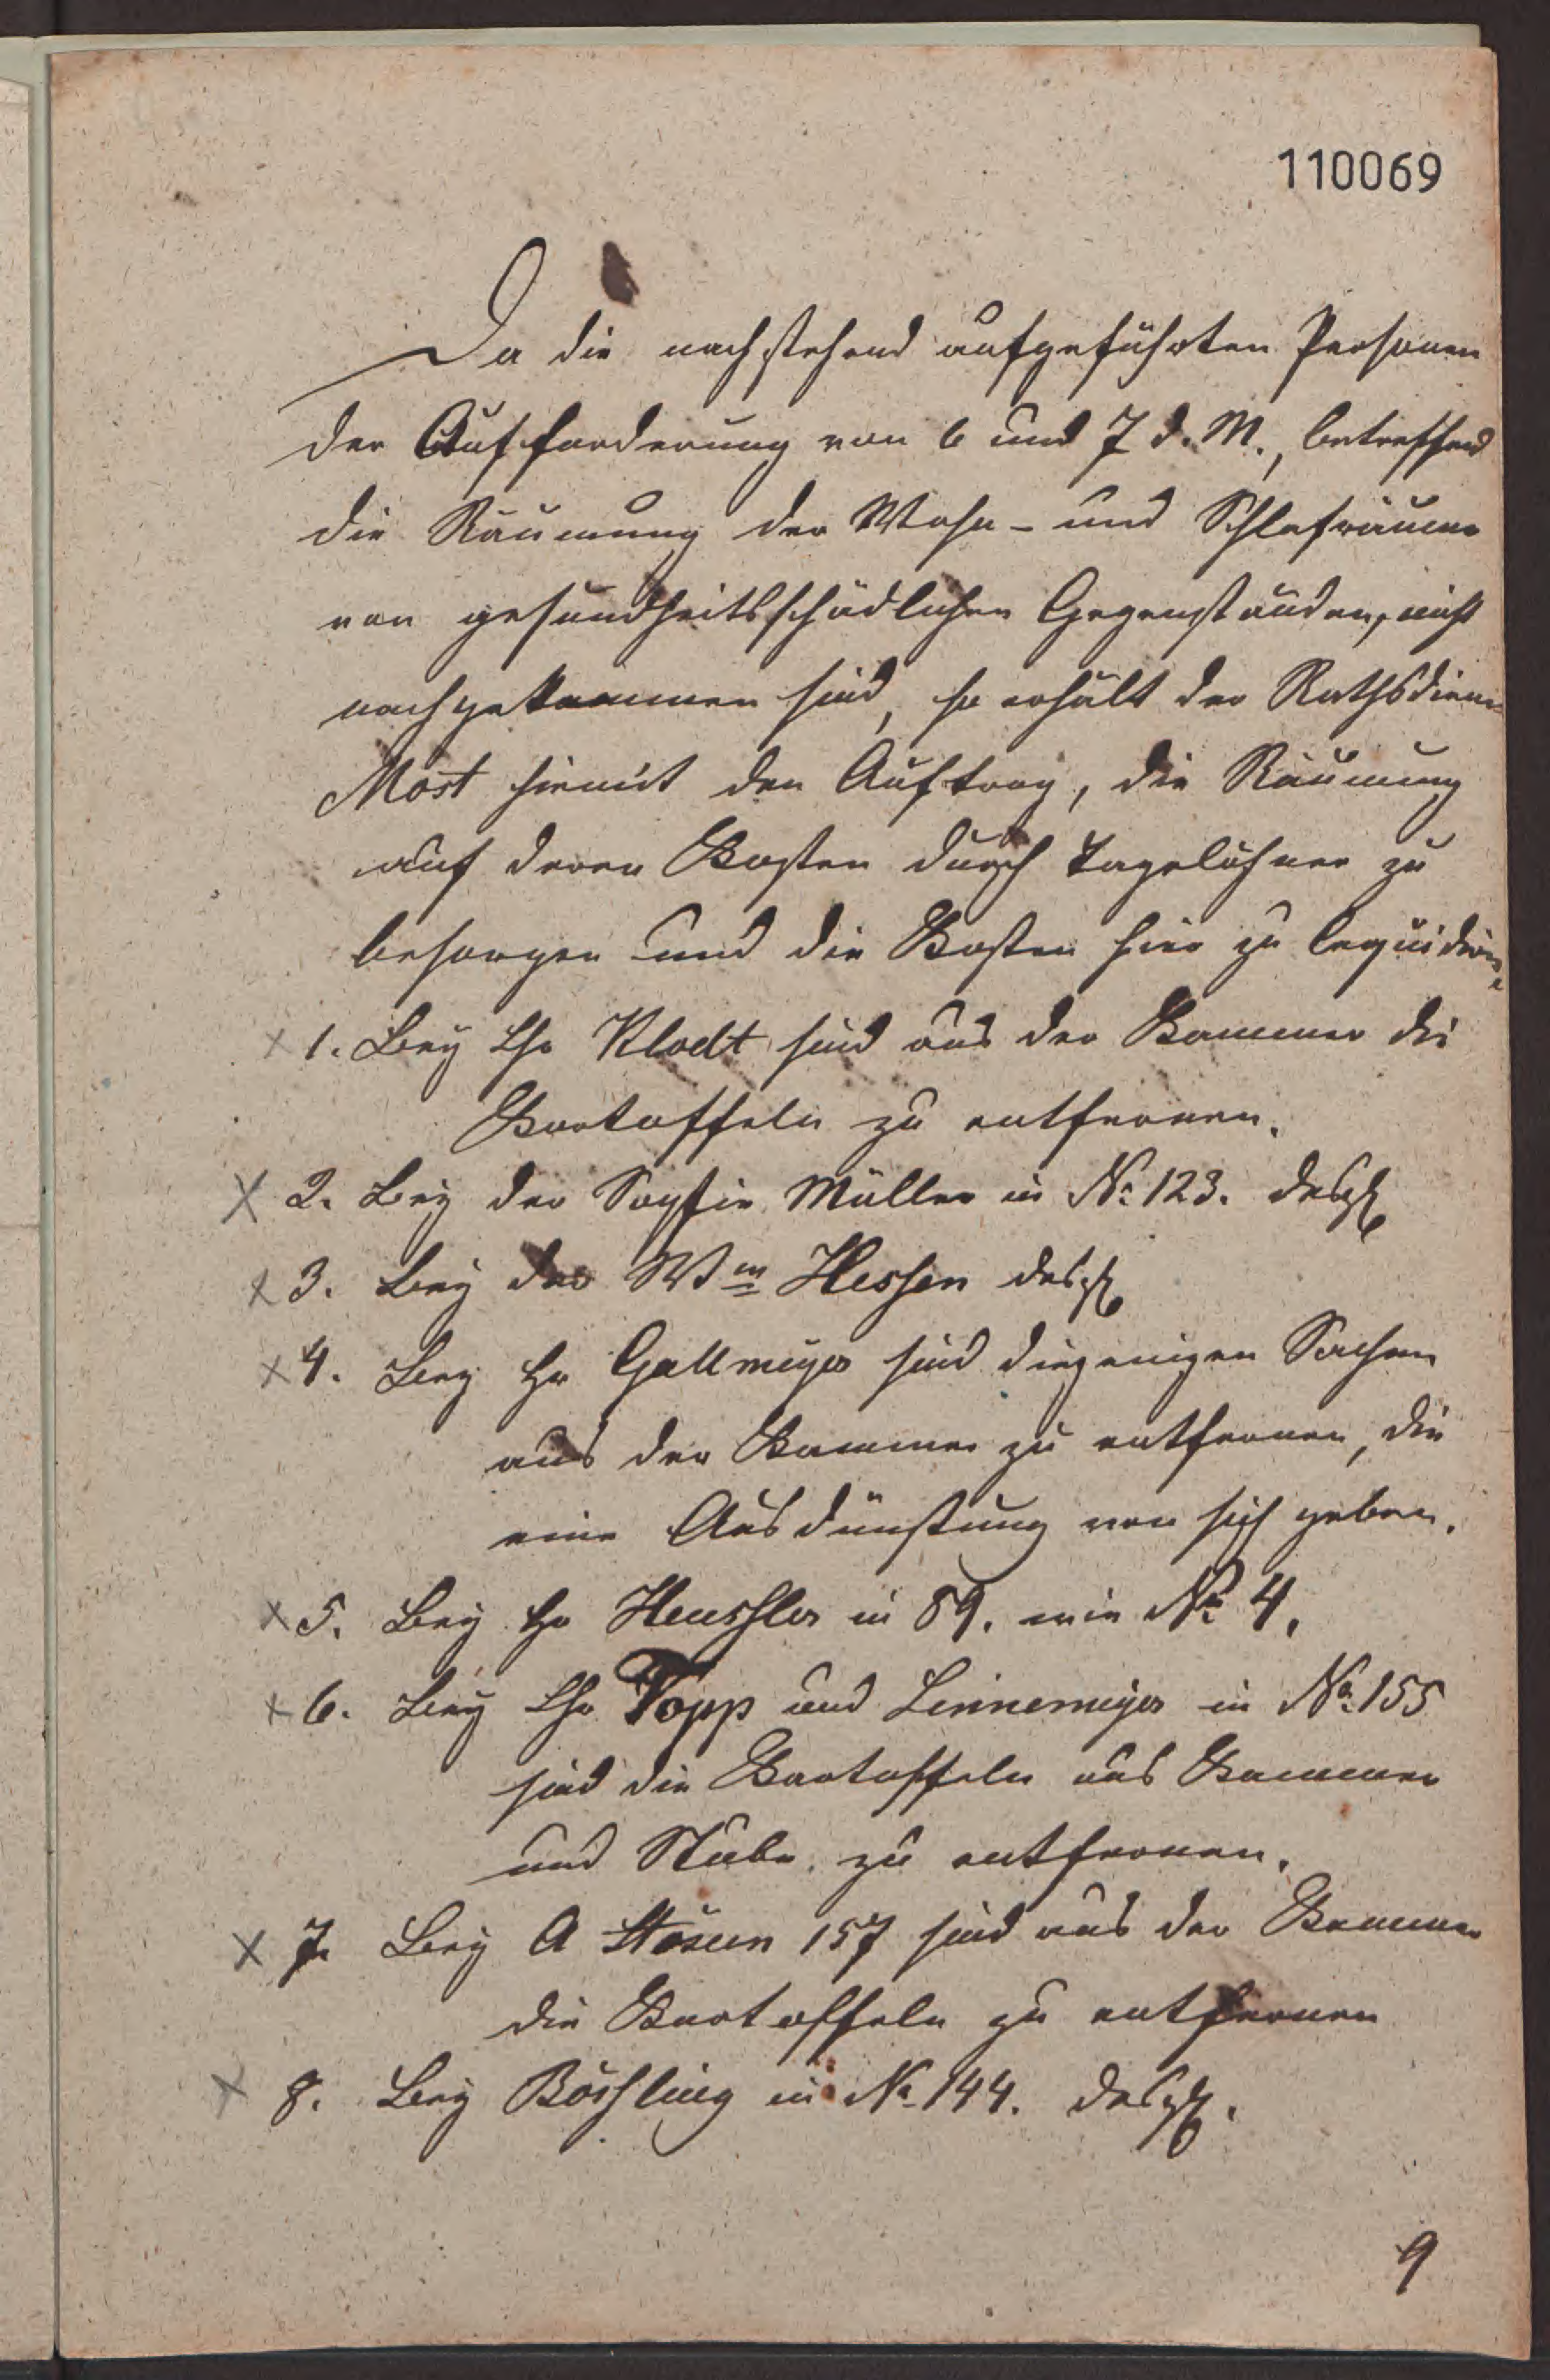 110069
Da die nachstehend aufgeführten Personen
der Aufforderung von 6 und 7 d. M., betreffend
die Räumung der Wohn- und Schlafräume
von gesundheitsschädlichen Gegenständen, nicht
nachgekommen sind, so erhält der Rathsdiener
Möst hiemit den Auftrag, die Räumung
auf deren Kosten durch Tagelöhner zu
besorgen und die Kosten hier zu liquidiren.
x 1. Bey Klodt sind aus der Kammer die
Kartoffeln zu entfernen.
x 2. Bey der Sophie Müller in No 123. desgl
x 3. Bey der Ww Hessen desgl
x 4. Bey Hr Gallmeyer sind diejenigen Sachen
aus der Kammer zu entfernen, die
eine Ausdünstung von sich geben.
x 5. Bey Hr Heussler in 89. wie No 4.
x 6. Bey Topp und Linnemeyer in No 155
sind die Kartoffeln aus Kammer
und Stube zu entfernen.
x 7. Bey A 157 sind aus der Kammer
die Kartoffeln zu entfernen
x 8. Bey Böshling in No 144. desgl.
9